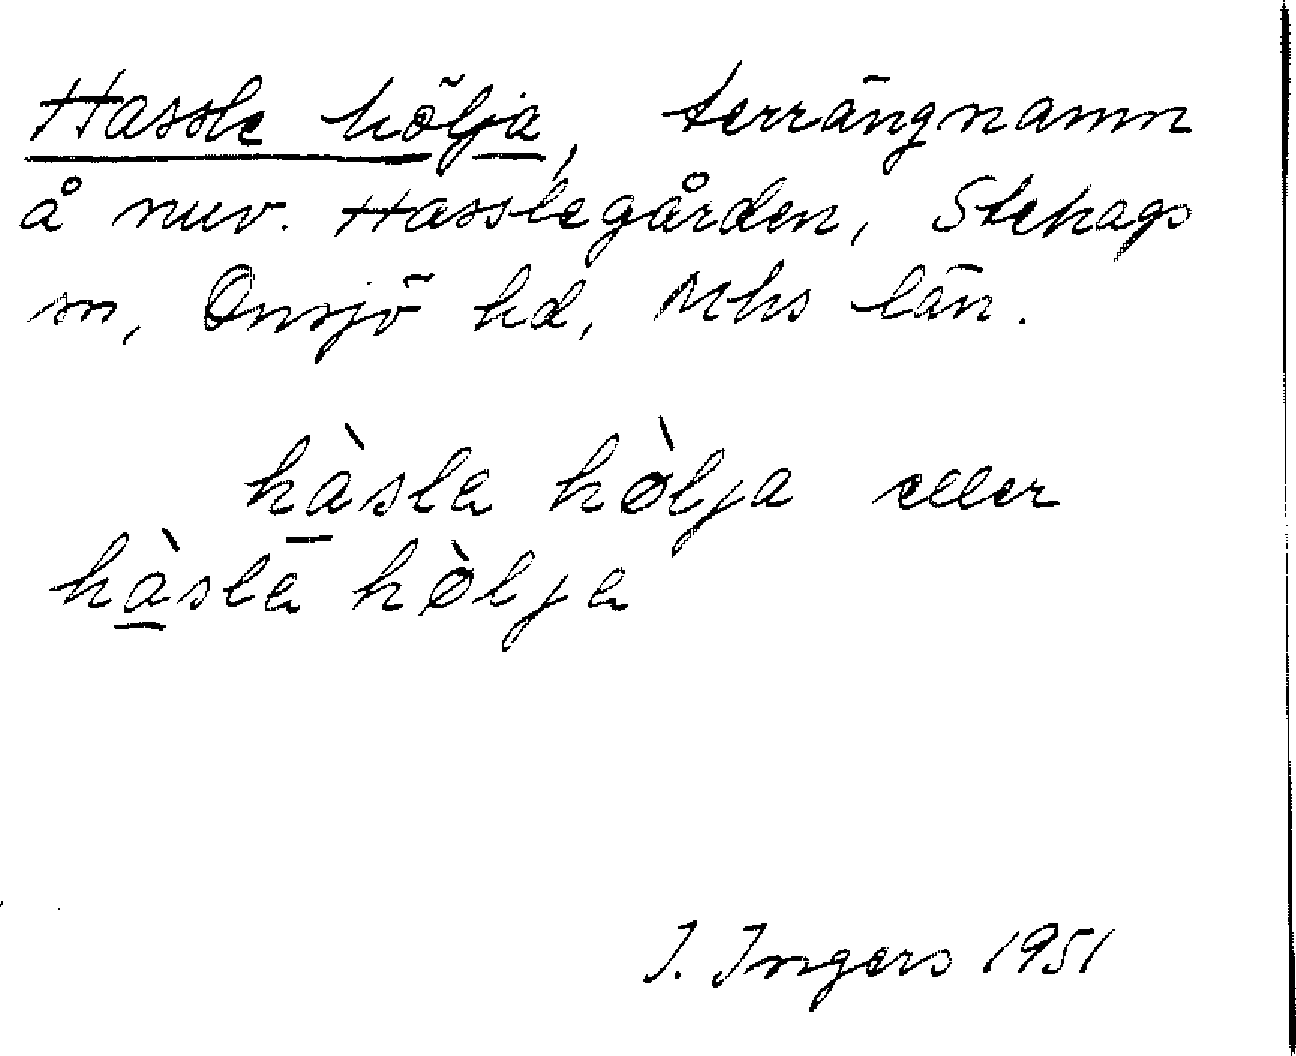 Hassle hölja, terrängnamn
å nuv. Hasslegården, Stehags
sn, Onsjö hd, Mhs län.
hàsla hòlja eller
hàsla hòlja
I. Ingers 1951